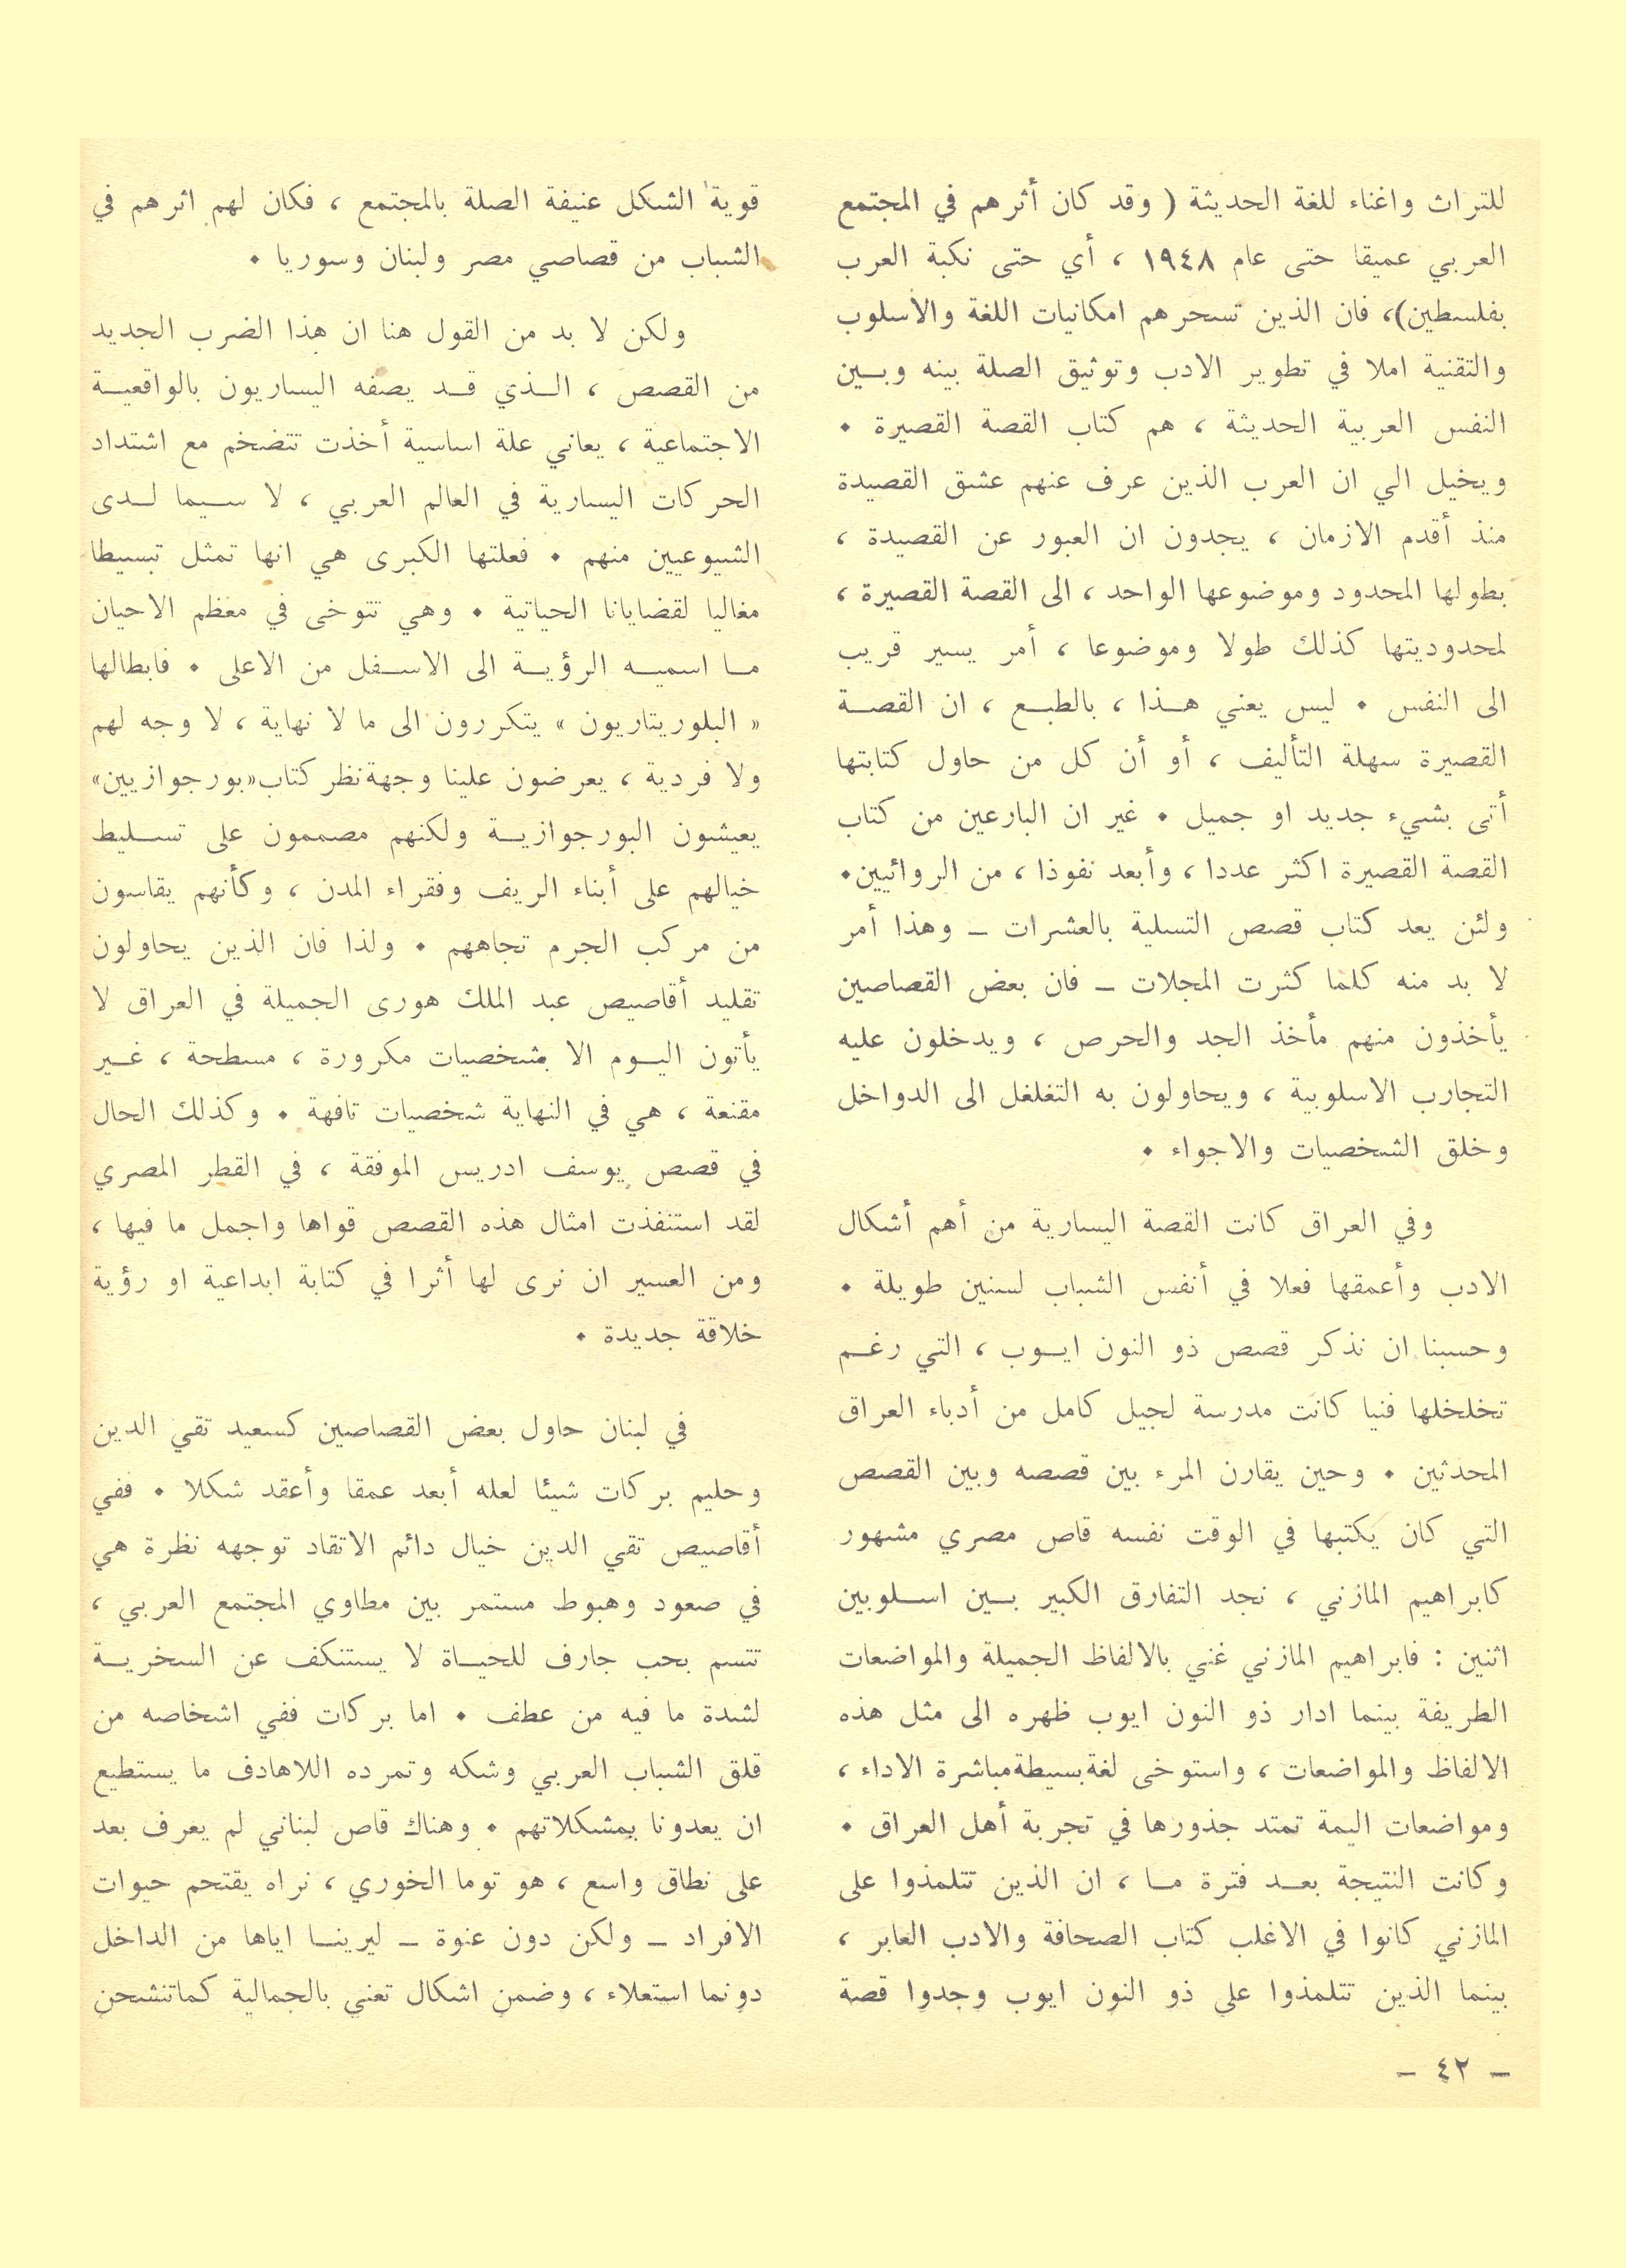 للتراث واغناء للغة الحديثة ( وقد كان أثرهم في المجتمع
العربي عميقا حتى عام ١٩٤٨ ، أي حتى نكبة العرب
بفلسطين)، فان الذين تسحرهم امكانيات اللغة والاسلوب
والتقنية املا في تطوير الادب وتوثيق الصلة بينه وبـين
النفس العربية الحديثة ، هم كتاب القصة القصيرة .
ويخيل الي ان العرب الذين عرف عنهم عشق القصيدة
منذ أقدم الازمان ، يجدون ان العبور عن القصيدة ،
بطولها المحدود وموضوعها الواحد ، الى القصة القصيرة ،
لمحدوديتها كذلك طولا وموضوعا ، أمر يسير قريب
الى النفس . ليس يعني هـذا ، بالطبـع ، ان القصـة
القصيرة سهلة التأليف ، أو أن كل من حاول كتابتها
أتى بشيء جديد او جميل . غير ان البارعين من كتاب
القصة القصيرة اكثر عددا ، وأبعد نفوذا ، من الروائيين.
ولئن يعد كتاب قصص التسلية بالعشرات ـ وهذا أمر
لا بد منه كلما كثرت المجلات ـ فان بعض القصاصين
يأخذون منهم مأخذ الجد والحرص ، ويدخلون عليه
التجارب الاسلوبية ، ويحاولون به التغلغل الى الدواخل
وخلق الشخصيات والاجواء .
وفي العراق كانت القصة اليسارية من أهم أشكال
الادب وأعمقها فعلا في أنفس الشباب لسنين طويلة .
وحسبنا ان نذكر قصص ذو النون ايـوب ، التي رغـم
تخلخلها فنيا كانت مدرسة لجيل كامل من أدباء العراق
المحدثين . وحين يقارن المرء بين قصصه وبين القصص
التي كان يكتبها في الوقت نفسه قاص مصري مشهور
كابراهيم المازني ، نجد التفارق الكبير بـين اسـلوبين
اثنين : فابراهيم المازني غني بالالفاظ الجميلة والمواضعات
الطريفة بينما ادار ذو النون ايوب ظهره الى مثل هذه
الالفاظ والمواضعات ، واستوخى لغة بسيطة مباشرة الاداء ،
ومواضعات اليمة تمتد جذورها في تجربة أهل العراق .
وكانت النتيجة بعـد فترة مـا ، ان الذين تتلمذوا على
المازني كانوا في الاغلب كتاب الصحافة والادب العابر ،
بينما الذين تتلمذوا على ذو النون ايوب وجدوا قصة
قوية الشكل عنيفة الصلة بالمجتمع ، فكان لهم اثرهم في
الشباب من قصاصي مصر ولبنان وسوريا .
ولكن لا بد من القول هنا ان هذا الضرب الجديد
من القصص ، الـذي قـد يصفه اليساريون بالواقعيـة
الاجتماعية ، يعاني علة اساسية أخذت تتضخم مع اشتداد
الحركات اليسارية في العالم العربي ، لا سـيما لـدى
الشيوعيين منهم . فعلتها الكبرى هي انها تمثل تبسيطا
مغاليا لقضايانا الحياتية . وهي تتوخى في معظم الاحيان
مـا اسميـه الرؤيـة الى الاسـفل من الاعلى . فابطالها
« البلوريتاريون » يتكررون الى ما لا نهاية ، لا وجه لهم
ولا فردية ، يعرضون علينا وجهة نظر كتاب «بورجوازيين»
يعيشون البورجوازيـة ولكنهم مصممون على تسـليط
خيالهم على أبناء الريف وفقراء المدن ، وكأنهم يقاسون
من مركب الجرم تجاههم . ولذا فان الذين يحاولون
تقليد أقاصيص عبد الملك هورى الجميلة في العراق لا
يأتون اليـوم الا بشخصيات مكرورة ، مسطحة ، غـير
مقنعة ، هي في النهاية شخصيات تافهة . وكذلك الحال
في قصص يوسف ادريس الموفقة ، في القطر المصري
لقد استنفذت امثال هذه القصص قواها واجمل ما فيها ،
ومن العسير ان نرى لها أثرا في كتابة ابداعية او رؤية
خلاقة جديدة .
في لبنان حاول بعض القصاصين كسعيد تقي الدين
وحليم بركات شيئا لعله أبعد عمقا وأعقد شكلا . ففي
أقاصيص تقي الدين خيال دائم الاتقاد توجهه نظرة هي
في صعود وهبوط مستمر بين مطاوي المجتمع العربي ،
تتسم بحب جارف للحيـاة لا يستنكف عن السخريـة
لشدة ما فيه من عطف . اما بركات ففي اشخاصه من
قلق الشباب العربي وشكه وتمرده اللاهادف ما يستطيع
ان يعدونا بمشكلاتهم . وهناك قاص لبناني لم يعرف بعد
على نطاق واسع ، هو توما الخوري ، نراه يقتحم حيوات
الافراد ـ ولكن دون عنوة ـ ليرينـا اياها من الداخل
دونما استعلاء ، وضمن اشكال تعنى بالجمالية كما تشحن
ـ ٤٢ ـ